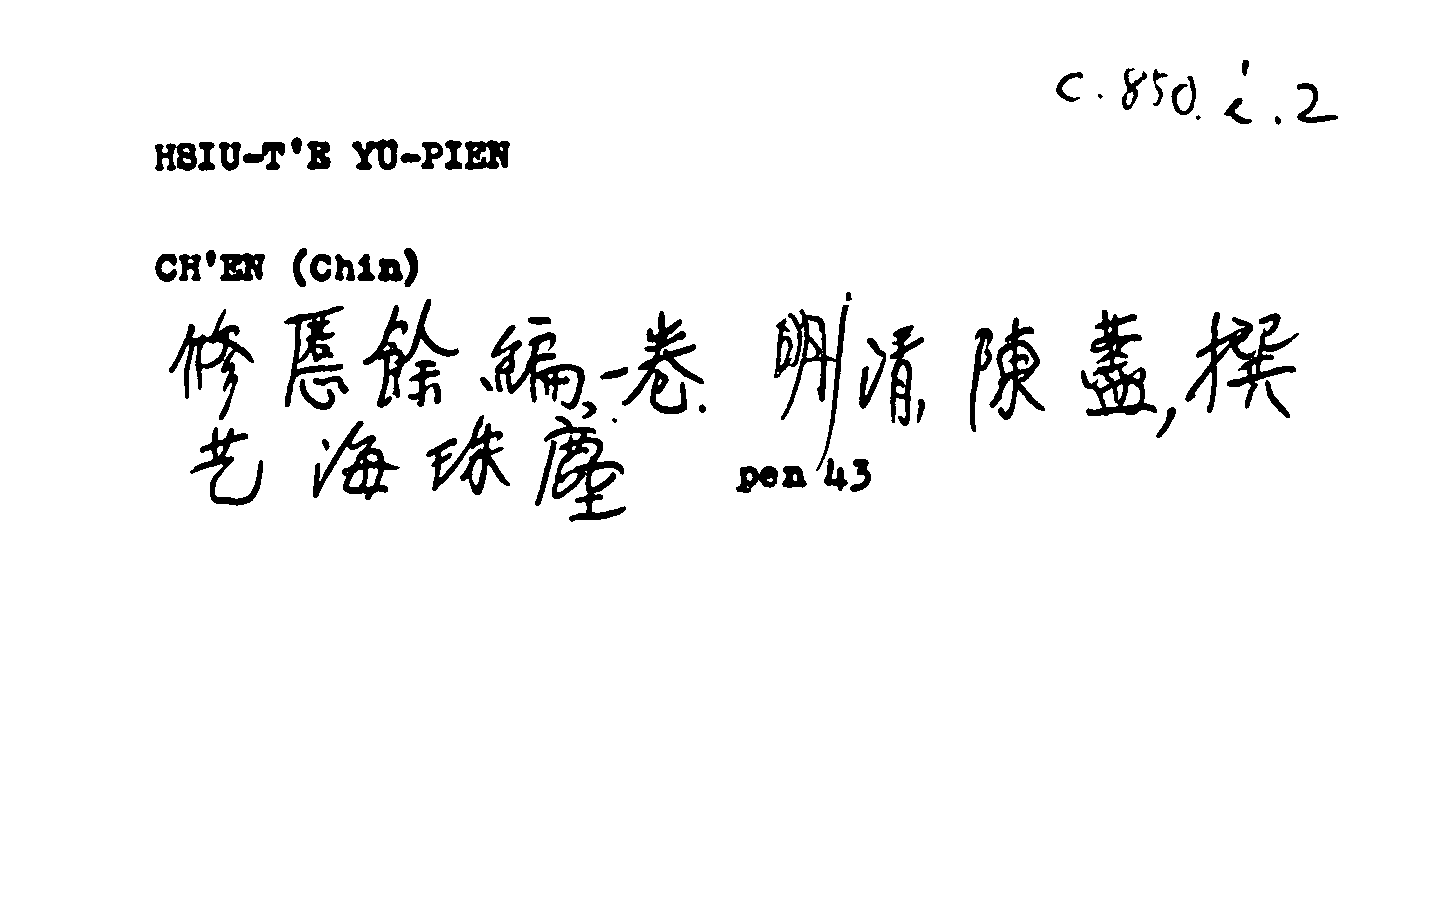 c.850.i.2
HSIU-T'E YÜ-PIEN
CH'EN (Chin)
修慝餘編一卷. 明清 陳藎, 撰
艺海珠塵 pen 43